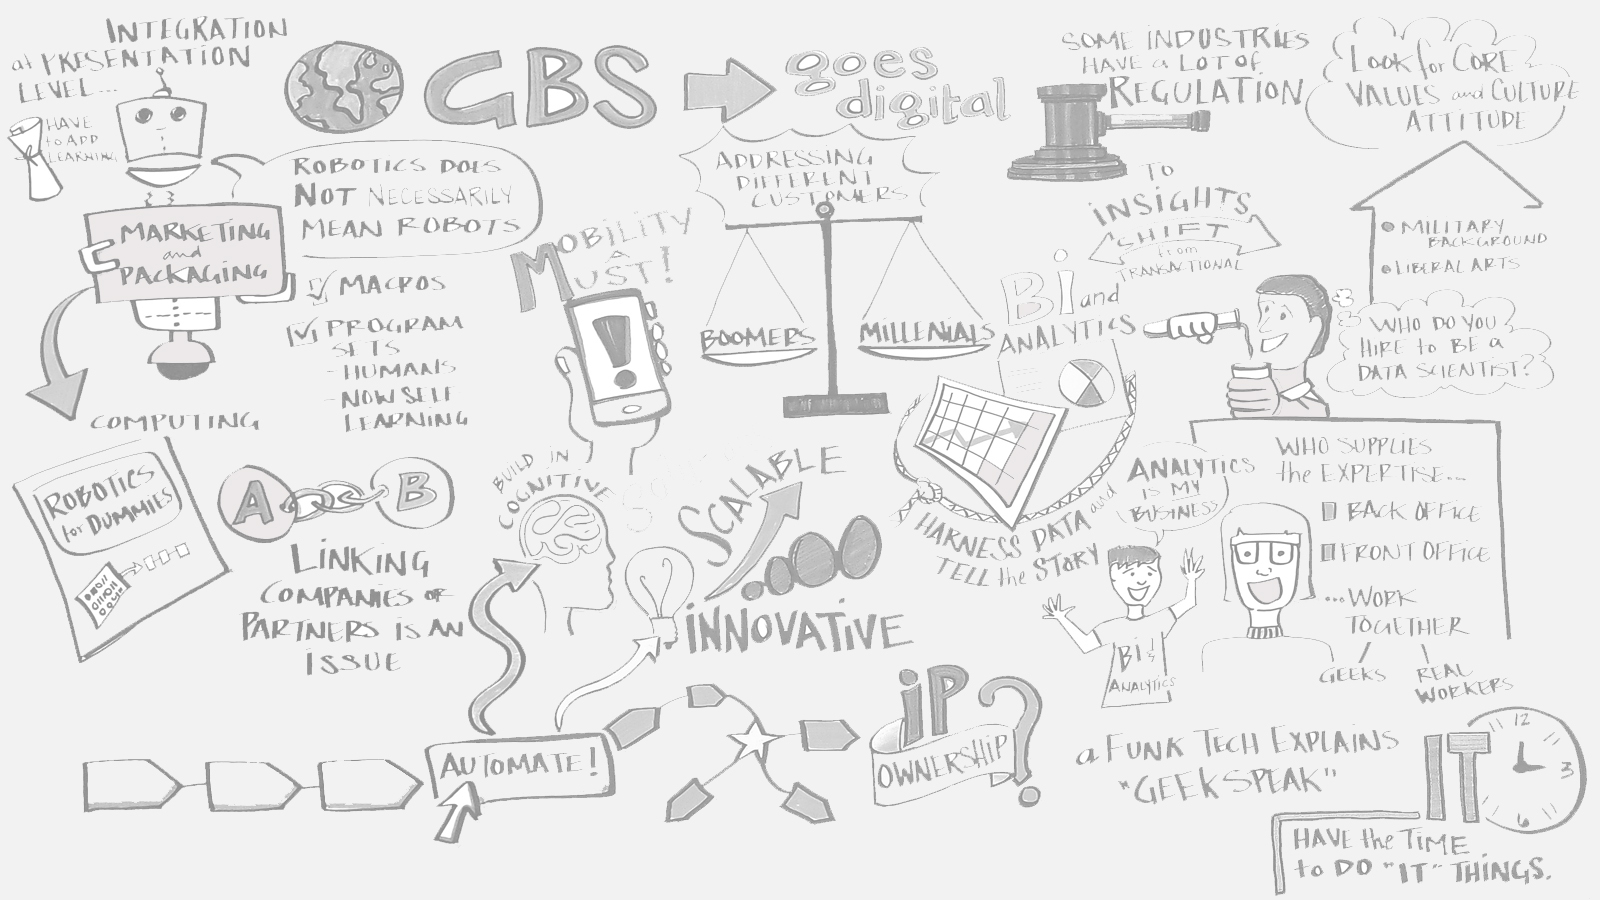 INTEGRATION
at PRESENTATION
LEVEL...
HAVE
to ADD
LEARNING
MARKETING
and
PACKAGING
GBS
goes
digital
ROBOTICS DOES
NOT NECESSARILY
MEAN ROBOTS
MACROS
PROGRAM
SETS
- HUMANS
- NOW SELF
LEARNING
COMPUTING
ROBOTICS
for DUMMIES
A
B
LINKING
COMPANIES OR
PARTNERS IS AN
ISSUE
MOBILITY
A
MUST!
!
ADDRESSING
DIFFERENT
CUSTOMERS
BOOMERS
MILLENIALS
BUILD IN
COGNITIVE
SCALABLE
INNOVATIVE
AUTOMATE!
IP
OWNERSHIP
?
SOME INDUSTRIES
HAVE a LOT of
REGULATION
TO
INSIGHTS
SHIFT
from
TRANSACTIONAL
BI and
ANALYTICS
HARNESS DATA and
TELL the STORY
ANALYTICS
IS MY
BUSINESS
BI &
ANALYTICS
LOOK for CORE
VALUES and CULTURE
ATTITUDE
MILITARY
BACKGROUND
LIBERAL ARTS
WHO DO YOU
HIRE to BE a
DATA SCIENTIST?
WHO SUPPLIES
the EXPERTISE...
BACK OFFICE
FRONT OFFICE
...WORK
TOGETHER
GEEKS
REAL
WORKERS
a FUNK TECH EXPLAINS
"GEEK SPEAK"
IT
12
3
6
HAVE the TIME
to DO "IT" THINGS.